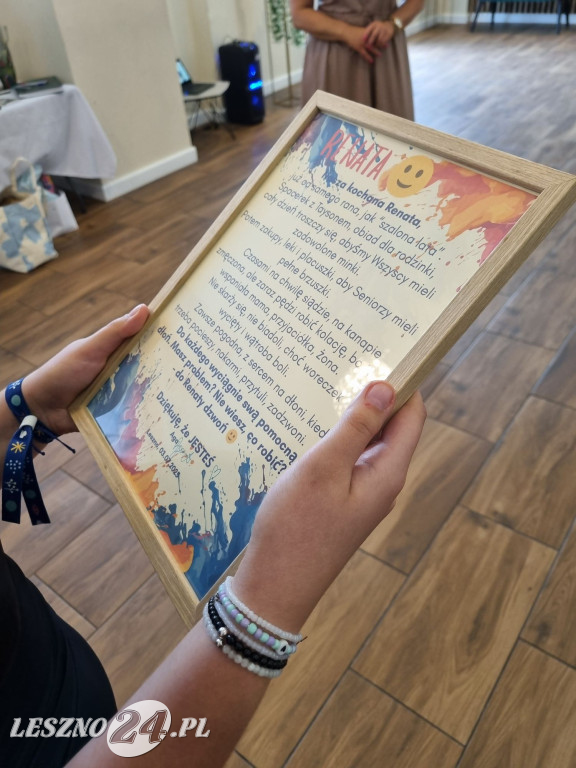 RENATA
za kochana Renata,
już od samego rana, jak "szalona łata"
Spacerek z Taysonem, obiad dla rodzinki,
cały dzień troszczy się, abyśmy Wszyscy mieli
zadowolone minki.
Potem zakupy, leki i placuszki, aby Seniorzy mieli
pełne brzuszki.
Czasami na chwilę siądzie, na kanapie
zmęczona, ale zaraz pędzi robić kolację, bo
wspaniała mama, przyjaciółka, żona.
Nie skarży się, nie biadoli, choć woreczek
wycięty i wątroba boli.
Zawsze pogodna, z sercem na dłoni, kied
trzeba pocieszy, nakarmi, przytuli, zadzwoni.
Do każdego wyciągnie swą pomocną
dłoń. Masz problem? Nie wiesz, co robić?
- do Renaty dzwoń
Dziękuję, że JESTEŚ
Leszno,
LESZNO24.PL